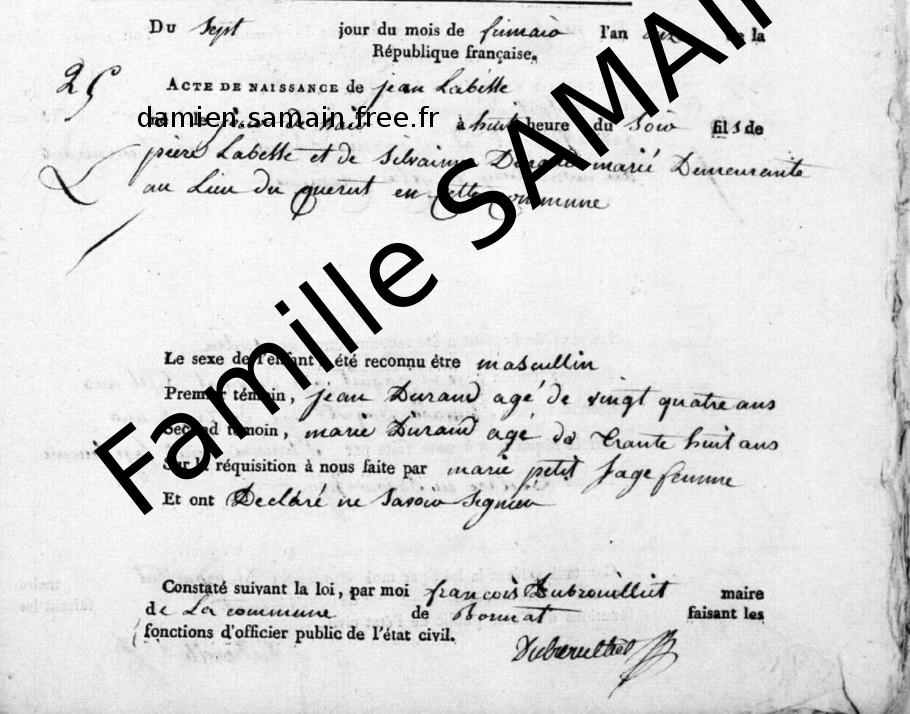 Du Sept jour du mois de frimaire l'an dix de la
République française.
25
Acte de naissance de jean Labesse
damien.samain.free.fr
à huit heure du Soir fils de
pierre Labesse et de Silvainne marié Demeurante
au Lieu du querut en cette commune
Le sexe de l'enfant a été reconnu être masculin
Premier témoin, jean Durand agé de vingt quatre ans
Second témoin, marie Durand agé de trante huit ans
Sur la réquisition à nous faite par marie petit Sage femme
Et ont Declaré ne Savoir Signer
Constaté suivant la loi, par moi francois Dubrouilliet maire
de La commune de Bonnat faisant les
fonctions d'officier public de l'état civil.
Dubrouilliet
Famille SAMAIN